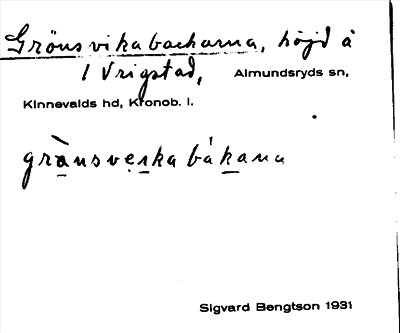 Grönsvikabackarna, höjd å
1 Vrigstad, Almundsryds sn,
Kinnevalds hd, Kronob. l.
grànsvẹṉka bákana
Sigvard Bengtson 1931